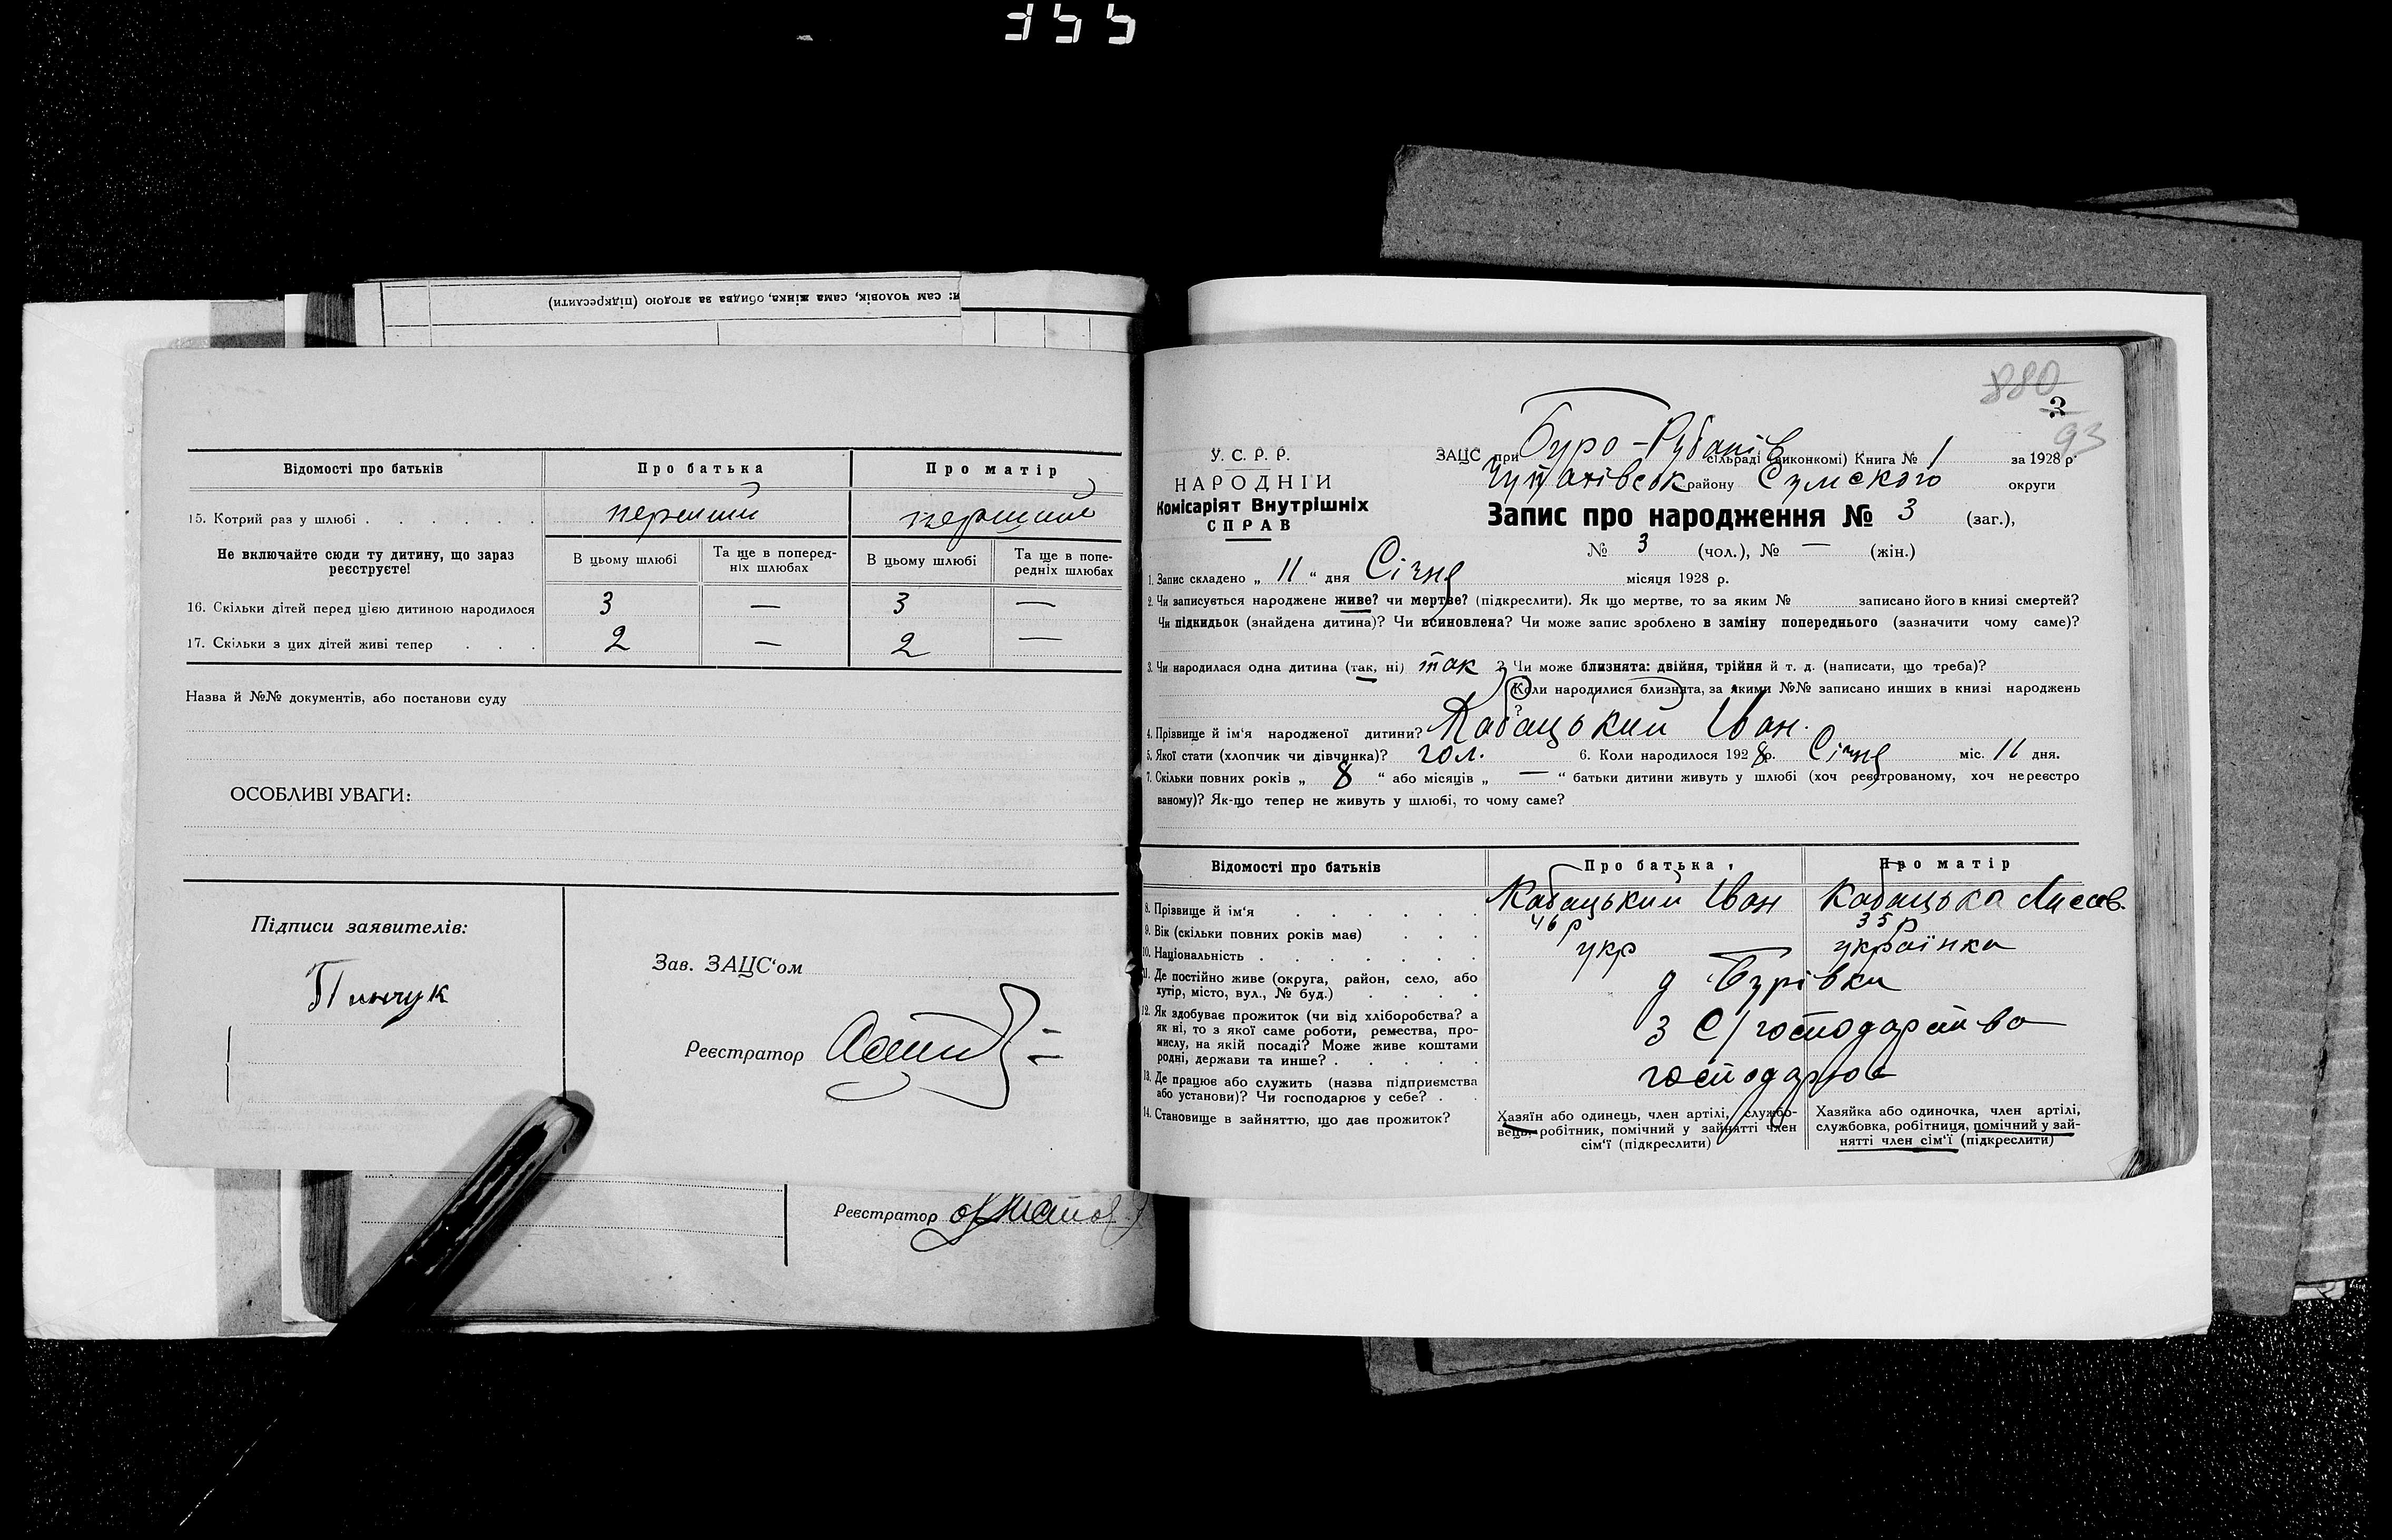 355
и: сам чоловік, сама жінка, обидва за згодою (підкреслити)
Відомості про батьків
Про батька
Про матір
15. Котрий раз у шлюбі
перший
перший
Не включайте сюди ту дитину, що зараз реєструєте!
В цьому шлюбі
Та ще в поперед-
ніх шлюбах
В цьому шлюбі
Та ще в попе-
редніх шлюбах
16. Скільки дітей перед цією дитиною народилося 3 — 3 —
17. Скільки з цих дітей живі тепер 2 — 2 —
Назва й №№ документів, або постанови суду
ОСОБЛИВІ УВАГИ:
Підписи заявителів:
Пинчук
Зав. ЗАЦС‘ом
Реєстратор
Реєстратор
880
3
93
У. С. Р. Р.
НАРОДНІЙ
Комісаріят Внутрішніх
СПРАВ
ЗАЦС при Буро-Рубанів сільраді (виконкомі) Книга № 1 за 1928 р.
району Сумского округи
Запис про народження № 3 (заг.),
№ 3 (чол.), № — (жін.)
1. Запис складено „ 11 “ дня Січня місяця 1928 р.
2. Чи записується народжене живе? чи мертве? (підкреслити). Як що мертве, то за яким № записано його в книзі смертей?
Чи підкидьок (знайдена дитина)? Чи всиновлена? Чи може запис зроблено в заміну попереднього (зазначити чому саме)?
3. Чи народилася одна дитина (так, ні) так ? Чи може близнята: двійня, трійня й т. д. (написати, що треба)?
Коли народилися близнята, за якими №№ записано инших в книзі народжень
?
4. Прізвище й ім‘я народженої дитини? Кабацький Іван.
5. Якої стати (хлопчик чи дівчинка)? чол. 6. Коли народилося 1928 р. Січня міс. 11 дня.
7. Скільки повних років „ 8 “ або місяців „ — “ батьки дитини живуть у шлюбі (хоч реєстрованому, хоч нереєстро
ваному)? Як-що тепер не живуть у шлюбі, то чому саме?
Відомості про батьків
Про батька
Про матір
8. Прізвище й ім‘я
Кабацький Іван
Кабацька Лисав.
9. Вік (скільки повних років має)
46 р
35 р
10. Національність
укр
українка
11. Де постійно живе (округа, район, село, або
хутір, місто, вул., № буд.)
д Бурівки
12. Як здобуває прожиток (чи від хліборобства? а
як ні, то з якої саме роботи, ремества, про-
мислу, на якій посаді? Може живе коштами
родні, держави та инше?
З С/господарства
13. Де працює або служить (назва підприємства
або установи)? Чи господарює у себе?
господарює
14. Становище в зайняттю, що дає прожиток?
Хазяїн або одинець, член артілі, службо-
вець, робітник, помічний у зайнятті член
сім‘ї (підкреслити)
Хазяйка або одиночка, член артілі,
службовка, робітниця, помічний у зай-
нятті член сім‘ї (підкреслити)